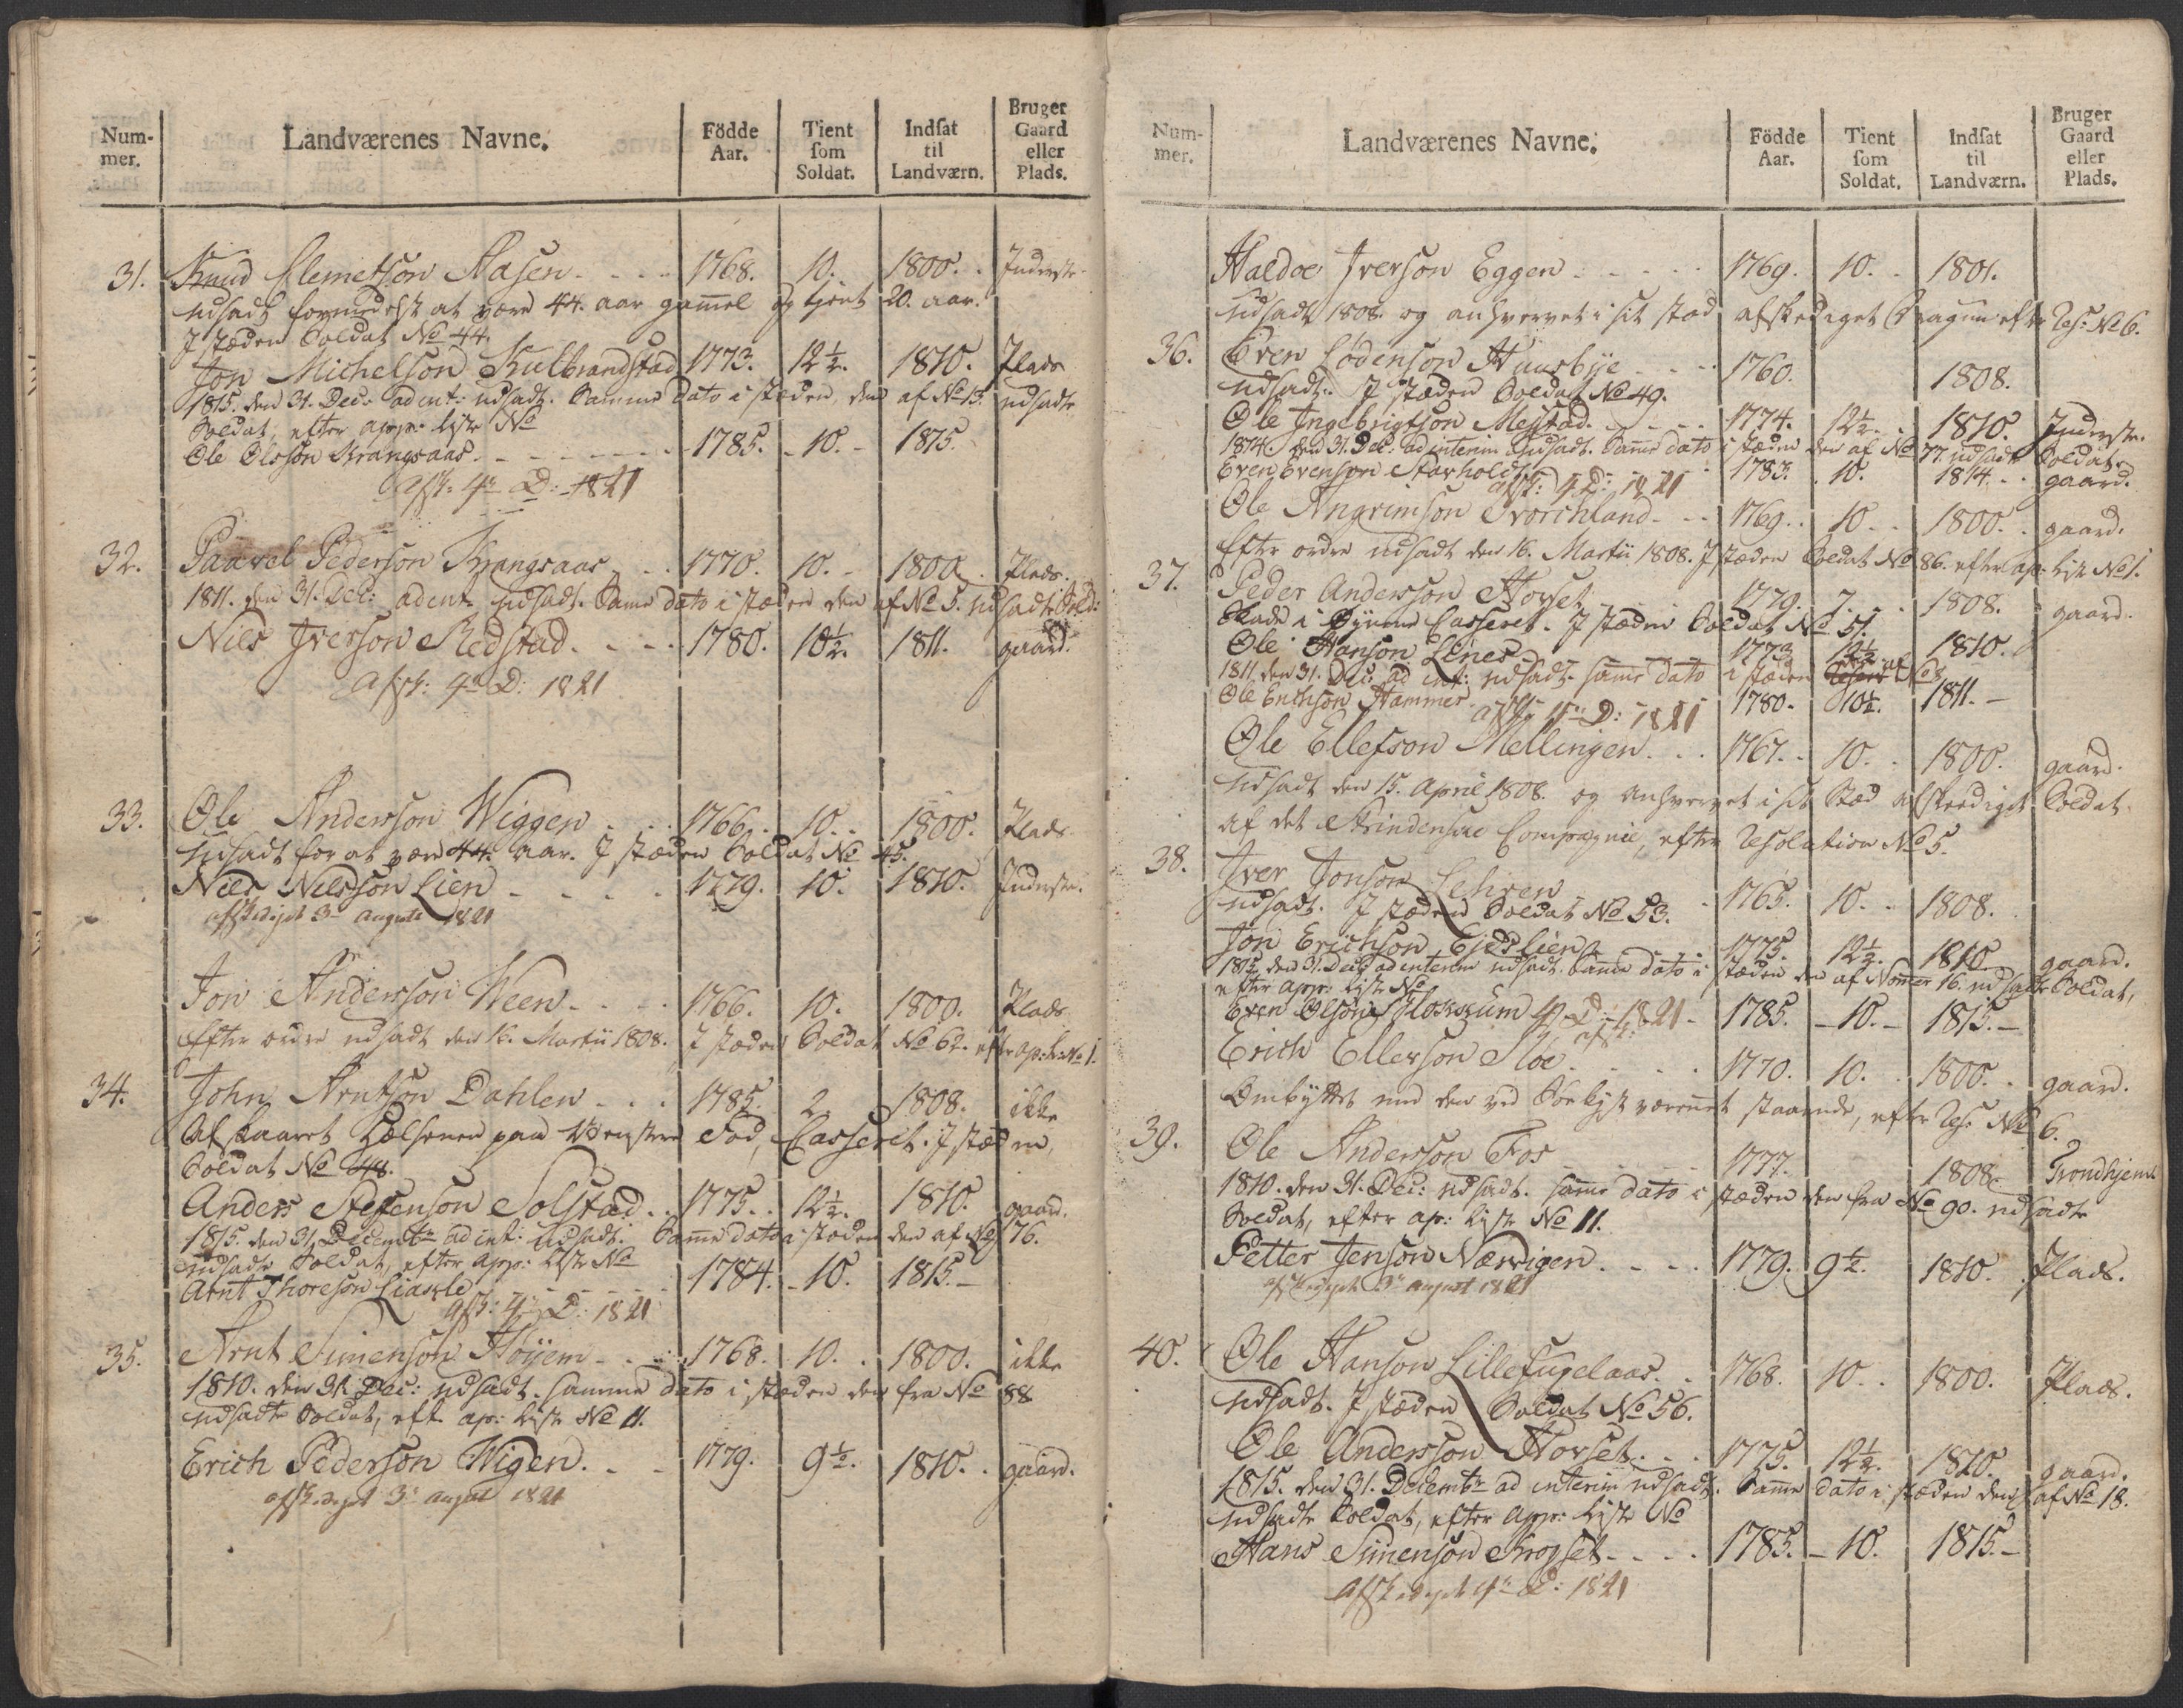 Num-
mer.
Landværenes Navne.
Födde
Aar.
Tient
som
Soldat.
Indsat
til
Landværn.
Bruger
Gaard
eller
Plads.
31. Knud Clemetson Aasen 1768. 10. 1800. Inderste
udsadt formedelst at være 44. aar gamel og tient 20. aar.
I stæden Soldat No 44.
Jon Michelson Kulbrandstad 1773. 12½. 1810. Plads
1815. den 31. Dec: ad int: udsadt. Samme dato i stæden den af No 13. udsadte
Soldat, efter app: liste No
Ole Olsson Krangsaas 1785. 10. 1815.
Afsk: 4de D: 1821
32. Paavel Pederson Krangsaas 1770. 10. 1800. Plads.
1811. den 31. Dec: ad int. udsadt. Same dato i stæden den af No 5. udsadte Sold:
Nils Iverson Redstad 1780. 10½. 1811. gaard.
Afsk: 4de D: 1821
33. Ole Anderson Wiggen 1766. 10. 1800. Plads
udsadt for at være 44. aar. I stæden Soldat No 45.
Nils Nilsson Lien 1779. 10. 1810. Inderste.
afskediget 3de august 1821
Jon Anderson Ween 1766. 10. 1800. Plads
Efter ordre udsadt den 16. Martii 1808. I stæden Soldat No 62. efter ap: l: No 1.
34. John Arntson Dahlen 1785. 2 1808. ikke
Afskaaret Hælsenen paa Venstre Fod, Casseret. I stæden,
Soldat No 48.
Anders Steffenson Solstad 1775. 12½. 1810. gaard.
1815. den 31. Decembr ad int: udsadt. Same dato i stæden den af No 176.
udsadte Soldat, efter App: liste No
Arnt Thoreson Liasle 1784. 10. 1815.
Afsk: 4de D: 1821
35. Arnt Simenson Höyem 1768. 10. 1800. ikke
1810. den 31. Dec: udsadt. samme dato i stæden den fra No 88
udsadte Soldat, eft. ap: liste No 11.
Erich Pederson Wigen. 1779. 9½. 1810. gaard.
afskediget 3de august 1821
Num-
mer.
Landværenes Navne.
Födde
Aar.
Tient
som
Soldat.
Indsat
til
Landværn.
Bruger
Gaard
eller
Plads.
Haldoe Iverson Eggen 1769. 10. 1801.
udsadt 1808. og anhvervet i sit stæd afskediget Dragun efter Res: No 6.
36. Even Lodenson Huusbye 1760. 1808.
udsadt. I stæden Soldat No 49.
Ole Ingebrigtson Mejstad. 1774. 12½. 1810. Inderste.
1814. den 31. Dec: ad interim udsadt. Same dato i stæden den af No 77. udsadte Soldat.
Even Evenson Storholdt 1783. 10. 1814. gaard.
afsk: 4 D: 1821
Ole Angrimson Svorchland 1769. 10. 1800. gaard.
Efter ordre udsadt den 16. Martii 1808. I stæden Soldat No 86. efter ap: liste No 1.
37. Peder Anderson Horset 1779. 7. 1808. gaard.
Skade i Öynene Casseret. I stæden Soldat No 51.
Ole Hanson Lines 1773. 12½ 1810.
1811. den 31. Dec: ad int: udsadt. same dato i stæden af No 8
Ole Enchson Hammer 1780. 10½. 1811.
afsk: 4de D: 1821
Ole Ellefson Mellingen 1767. 10. 1800. gaard.
udsadt den 15. April 1808. og anhvervet i sit Stæd afskediget Soldat
af det Strindenske Compagnie, efter Resolation No 5.
38. Iver Jonson Lehren 1765. 10. 1808.
udsadt. I stæden Soldat No 53.
Jon Erichson Ejdslien 1775. 12½. 1810 gaard.
1815. den 31. Dec: ad interim udsadt. Same dato i stæden den af Nomer 16. udsadte Soldat,
efter App: liste No
Even Olson Floeskum 1785. 10. 1815.
afsk: 4 D: 1821
Erich Ellerson Moe 1770. 10. 1800. gaard.
Ombyttet med den ved Söe lyst værenet staaende, efter Res: No 6.
39. Ole Anderson Fos 1777. 1808. Trondhjem
1810. den 31. Dec: udsadt. same dato i stæden den fra No 90. udsadte
Soldat, efter ap: liste No 11.
Petter Jenson Nærvigen. 1779. 9½. 1810. Plads.
afskediget 3de august 1821
40. Ole Hanson Lillefugelaas. 1768. 10. 1800. Plads.
udsadt. I stæden Soldat No 56.
Ole Andersson Horset 1775. 12½. 1810. gaard.
1815. den 31. Decembr ad interim udsadt. Same dato i stæden den af No 18.
udsadte Soldat, efter App: liste No
Hans Simenson Krogset 1785. 10. 1815.
Afskediget 4de D: 1821